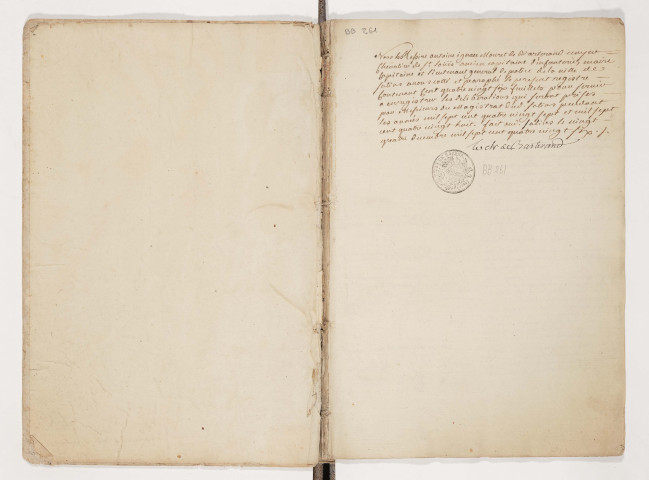 BB 261
Nous
Chevalier de St Louis ancien capitaine d'infanterie maire
Capitaine et Lieutenant general de police de la ville de
Salins avons cotté et paraphé le present registre
Contenant Cent quatre vingt six feuillets pour servir
a enregistrer les deliberations qui seront prises
par Messieurs du Magistrat dud. Salins pendant
les années mil sept cent quatre vingt sept et mil sept
cent quatre vingt huit. fait aud. Salins le vingt
quatre Decembre mil sept cent quatre vingt six ./.